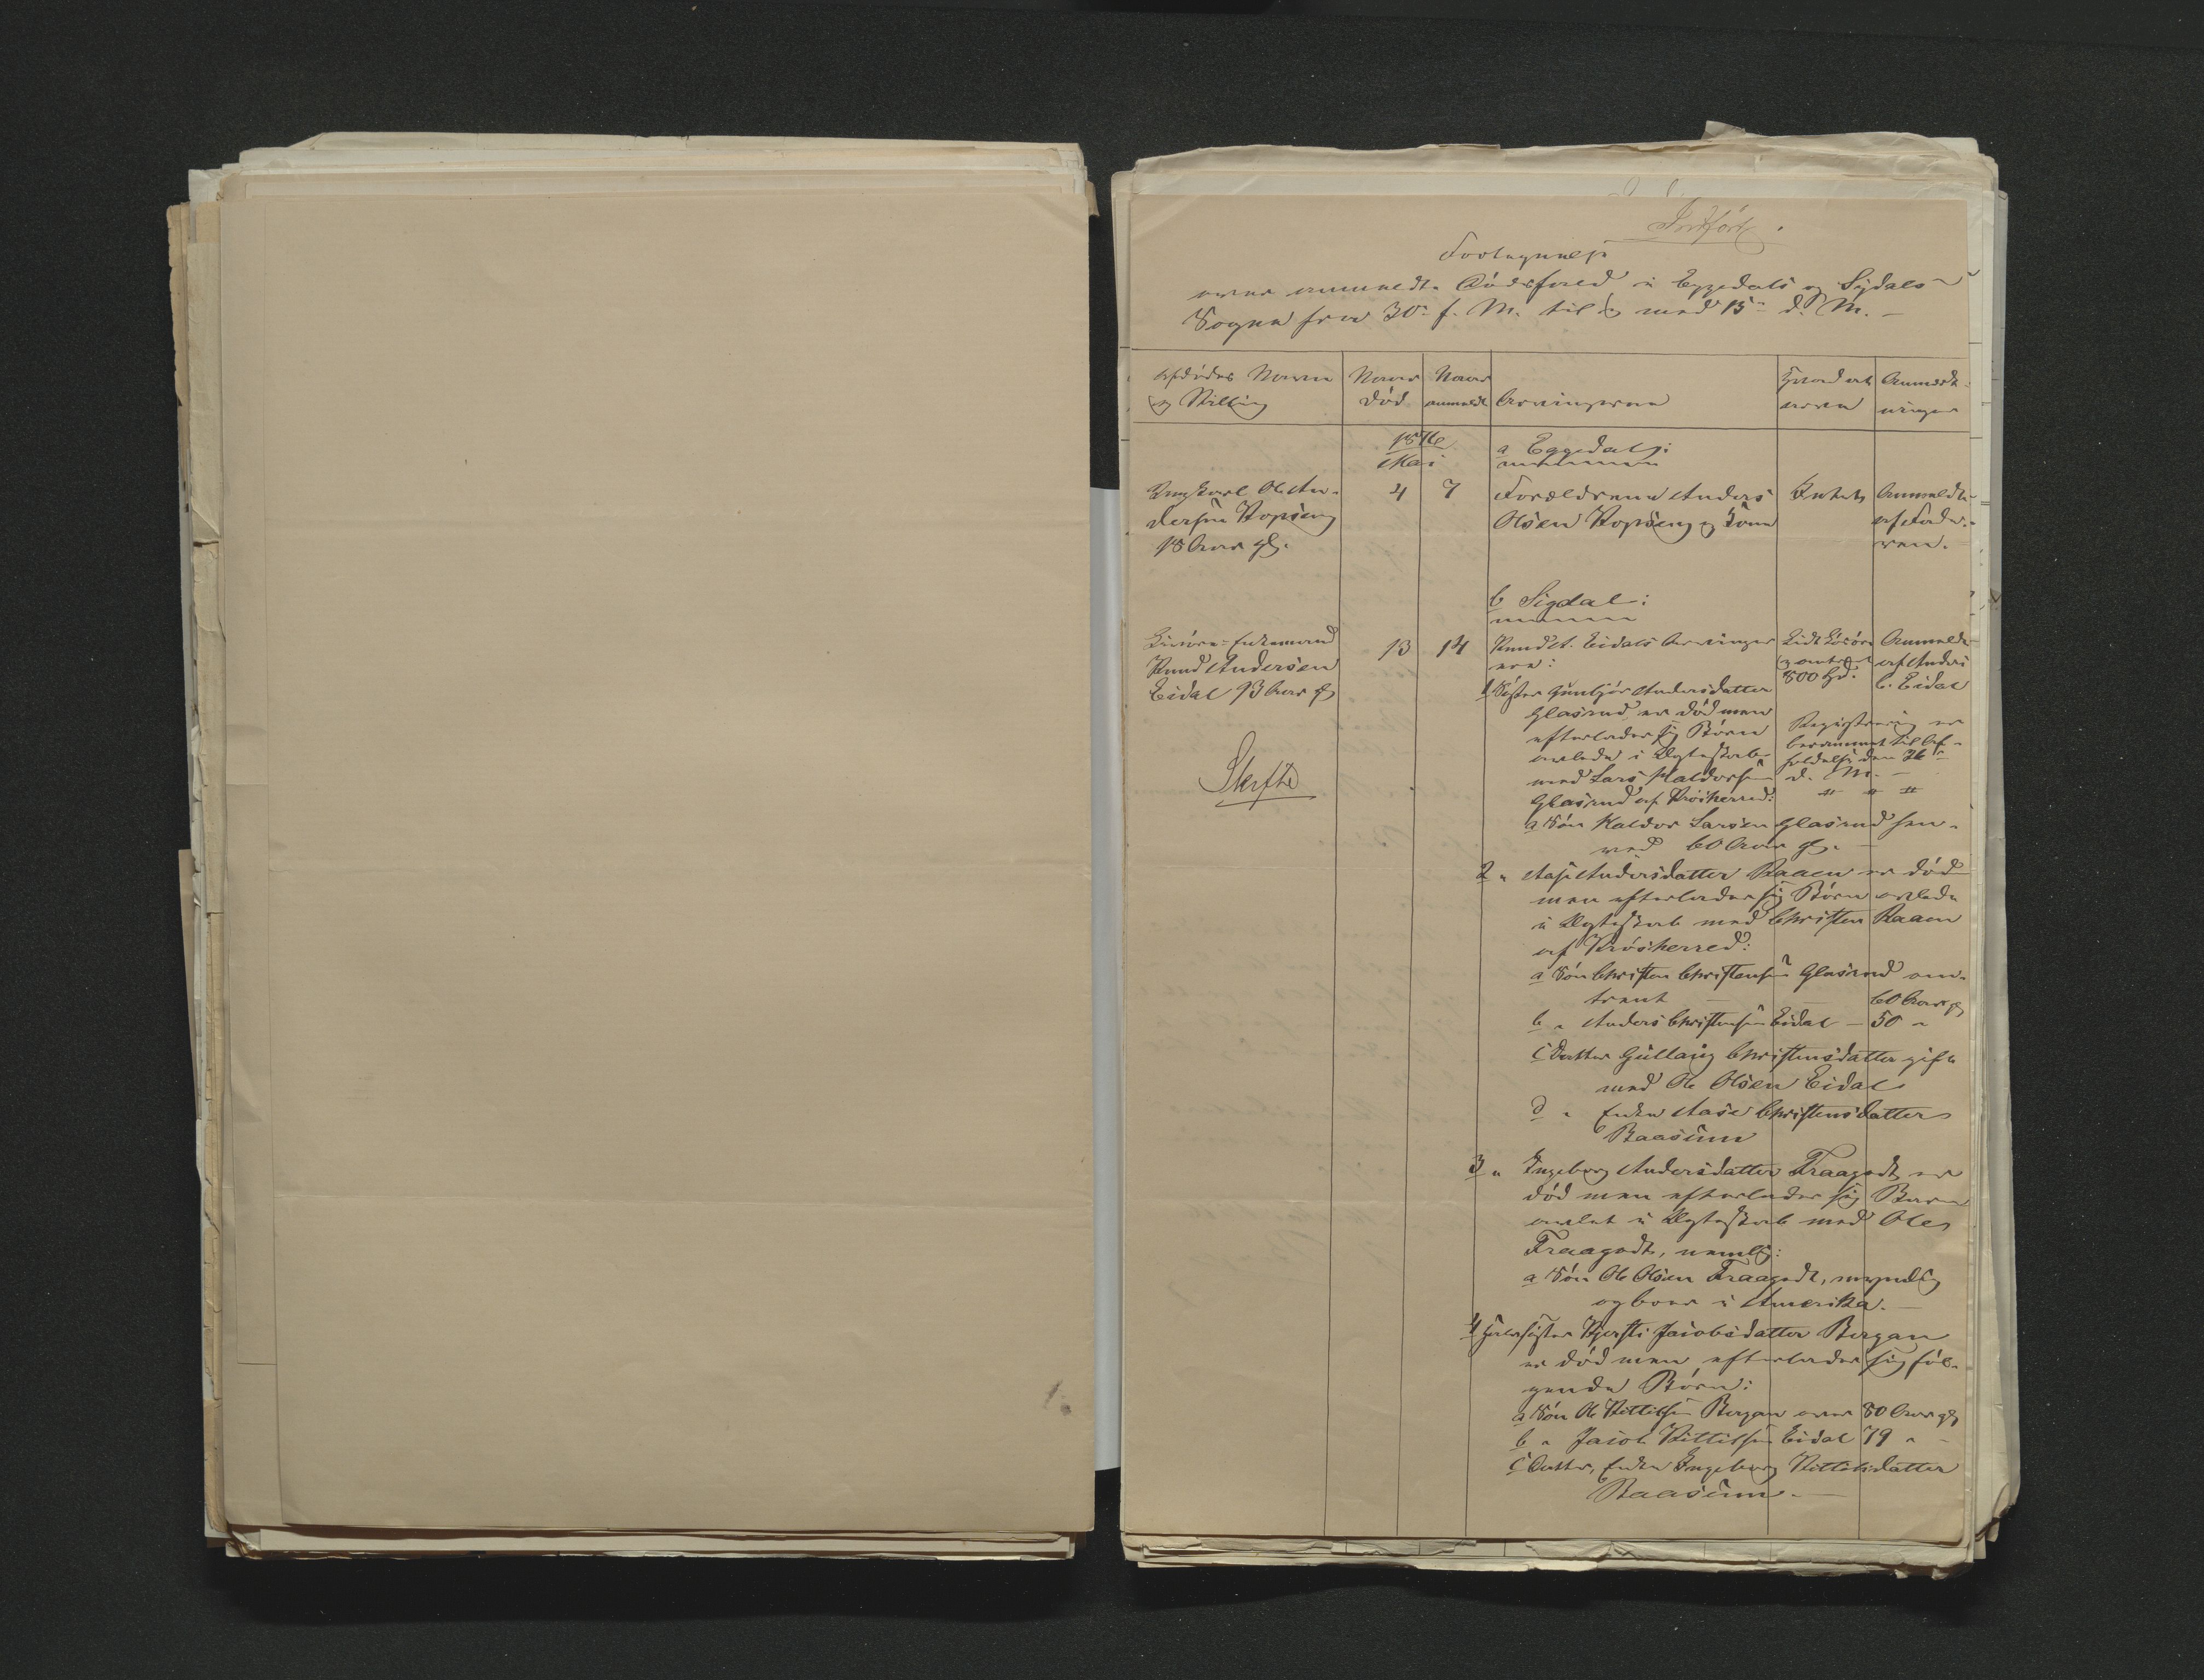 Indført.
Fortegnelse
over anmeldte Dødsfald i Eggedals og Sigdals
Sogne fra 30. f. M. til og med 15 d. M. -
Afdødes Navn
og Stilling
Naar
død
Naar
anmeldt
Arvingerne
Hvad at
arve
Anmærk-
ninger
1876
Mai
a Eggedal:
Ungkarl Ole An-
dersen Kopseng
18 Aar gl.
4
7
Forældrene Anders
Olsen Kopseng og Kone
Intet
Anmeldt
af Fade-
ren.
b Sigdal:
Enkemand
Knud Andersen
Eidal 93 Aar gl
13
14
Knud A. Eidals Arvinger
ere:
Lidt Løsøre
og omtrent
800 Spd.
Anmeldt
af Anders
C. Eidal
1 Søster Gunbjør Andersdatter
Glasrud er død men
efterlader sig Børn
avlede i Ægteskab
med Lars Haldorsen
Glasrud af Krødsherred:
Registrering er
berammet til Af-
holdelse den 26
d. M. -
a Søn Haldor Larsen Glasrud hen-
ved 60 Aar gl.
Skifte
2 " Aase Andersdatter Raaen er død
men efterlader sig Børn avlede
i Ægteskab med Christen Raaen
af Krødsherred:
a Søn Christen Christensen Glasrud om-
trent 60 Aar gl
b " Anders Christensen Eidal - 50 "
c Datter Gullaug Christensdatter gift
med Ole Olsen Eidal
d " Enke Aase Christensdatter
Raasum
3 " Ingeborg Andersdatter Fraagodt er
død men efterlader sig Barn
avlet i Ægteskab med Ole
Fraagodt, nemlig:
a Søn Ole Olsen Fraagodt, myndig
og boer i Amerika. -
4 Halvsøster Kjersti Jacobsdatter Bergan
er død men efterlader sig føl-
gende Børn:
a Søn Ole Kittilsen Bergan over 80 Aar gl
b " Jacob Kittilsen Eidal 79 " -
c Datter, Enke Ingeborg Kittilsdatter
Raasum. -